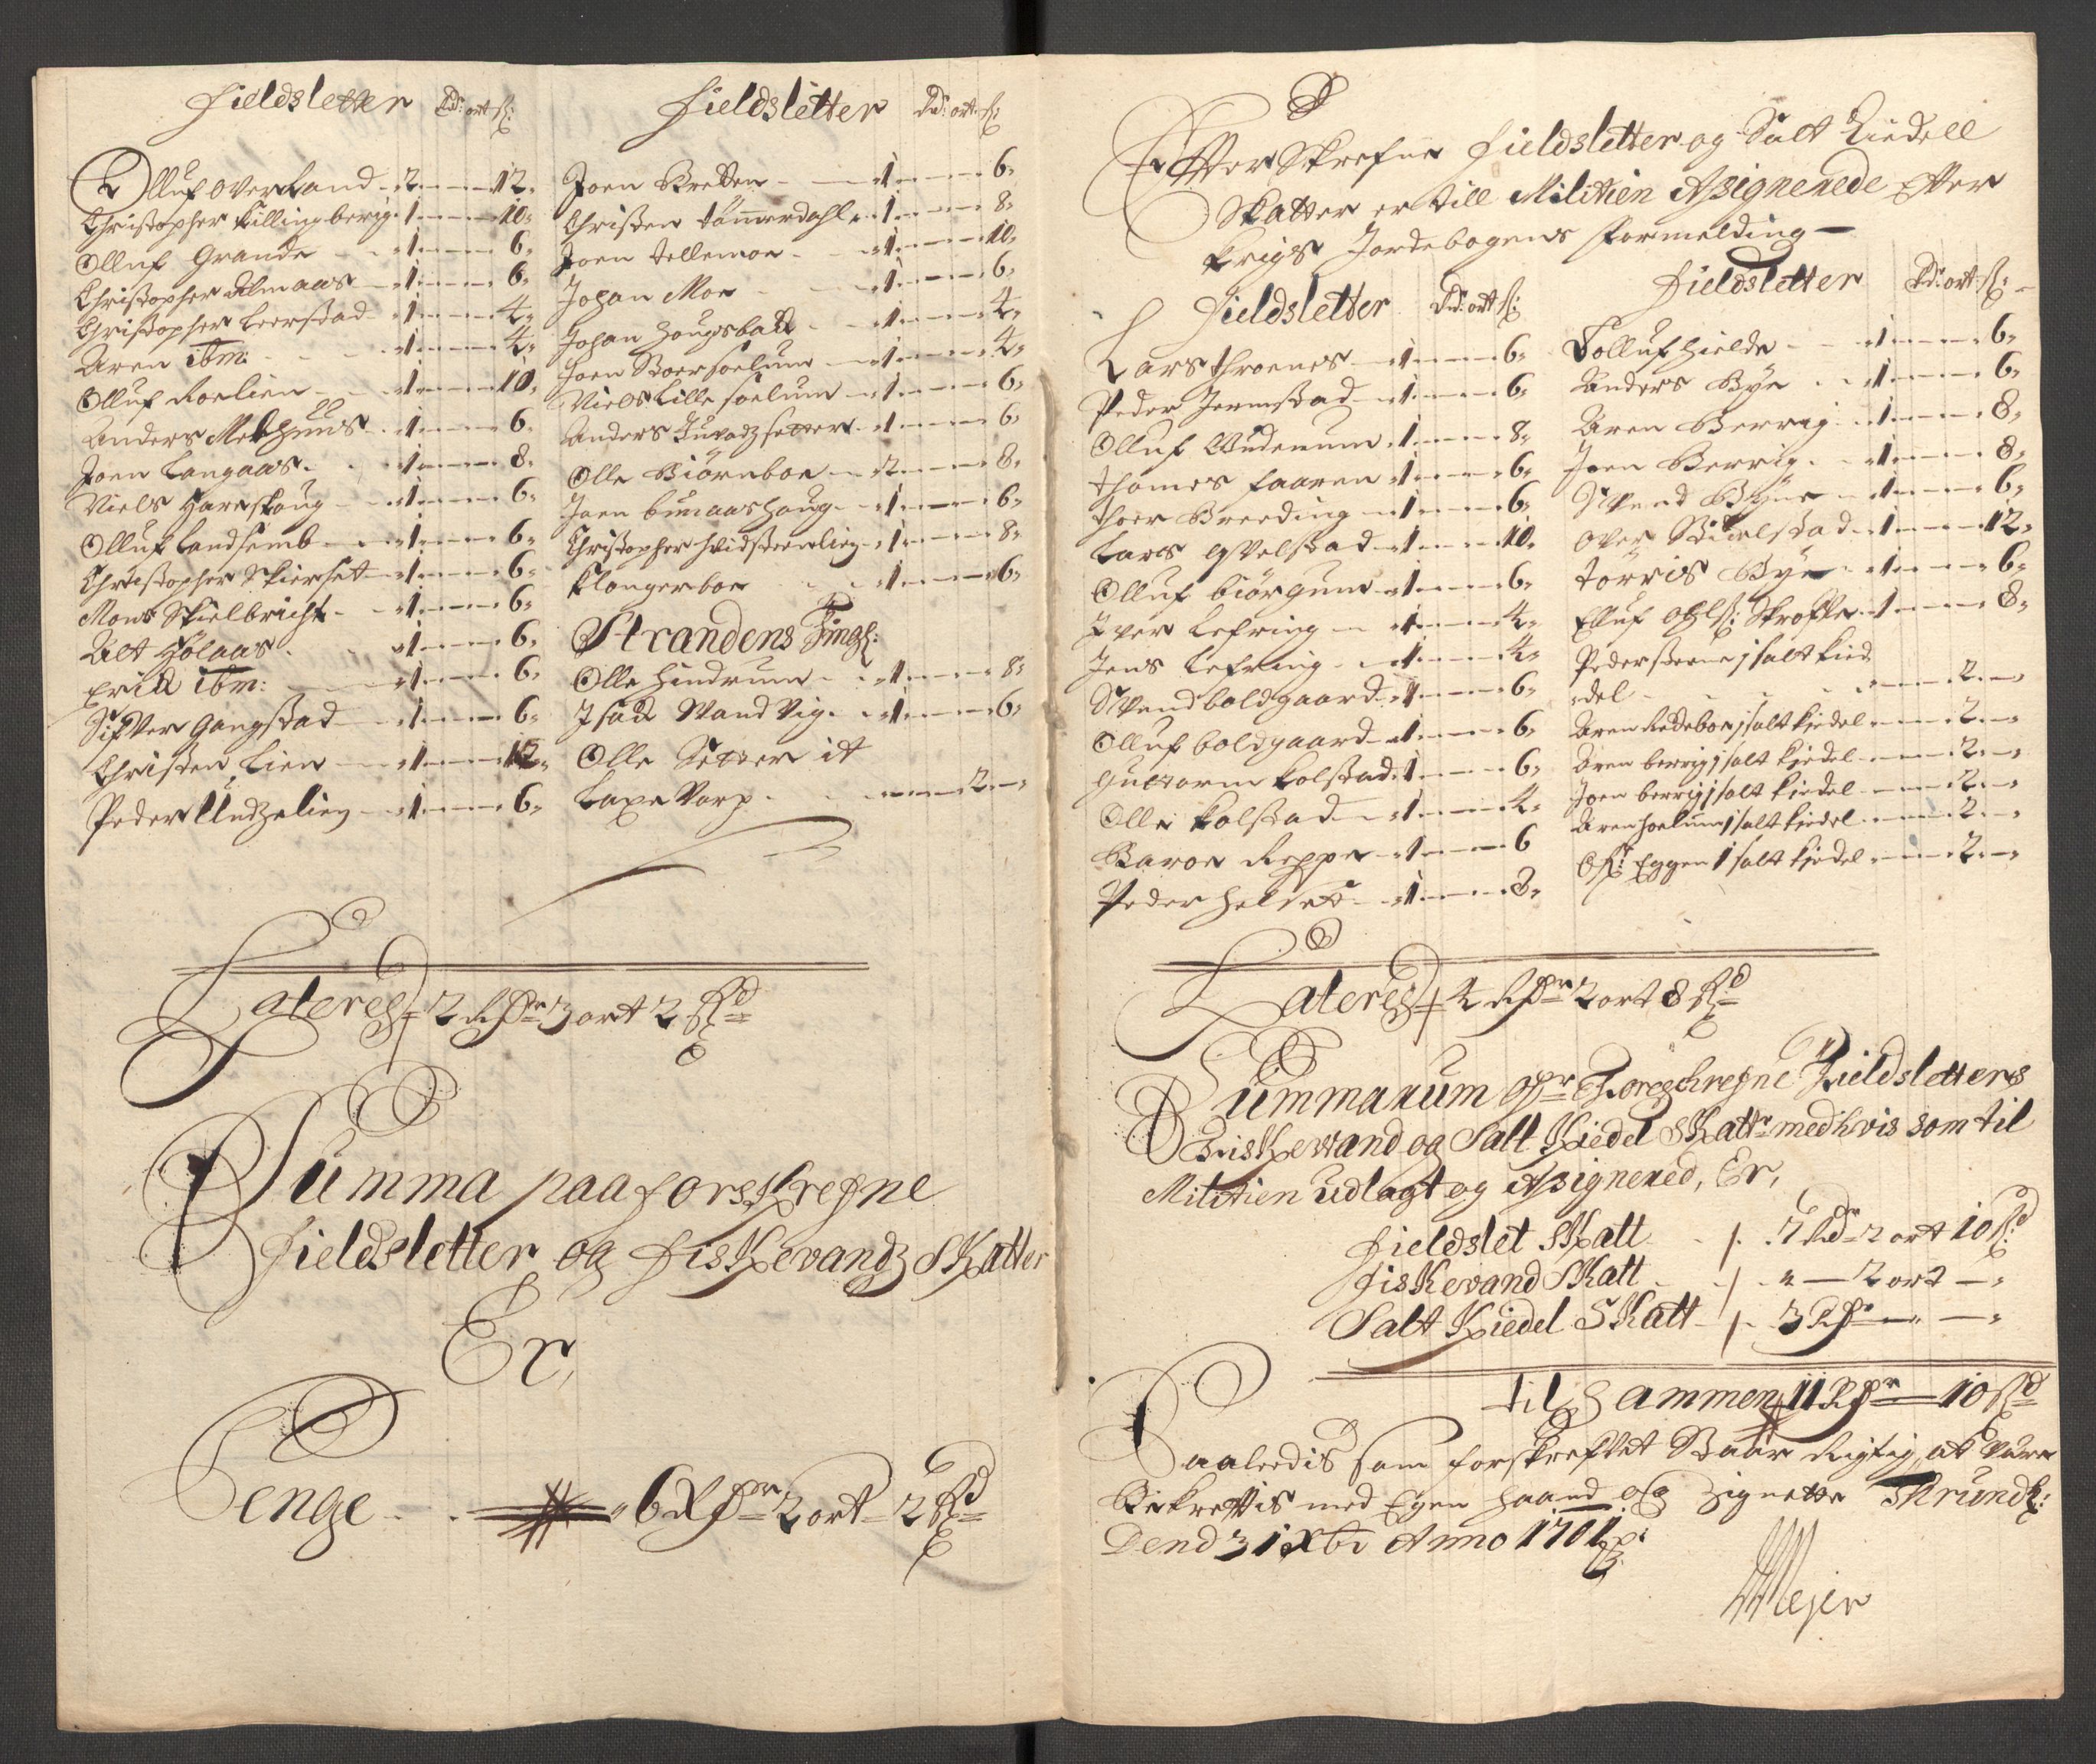 Fieldsletter Rd: ort ß:
Olluf Overland - 2 - - 12,
Christopher Killingberig - 1 - - 10,
Olluf Grande - 1 - - 6,
Christopher Almaas - 1 - - 6,
Christopher Leerstad - 1 - - 4,
Aren ibm: - 1 - - 4,
Olluf Roelien - 1 - - 10,
Anders Melhuus - 1 - - 6,
Joen Langaas - 1 - - 8,
Niels Hareskoug - 1 - - 6,
Olluf Landsemb - 1 - - 6,
Christopher Skierset - 1 - - 6,
Mons Skielbricht - 1 - - 6,
Alt Holaas - 1 - - 6,
Erick ibm: - 1 - - 6,
Sifver Gangstad - 1 - - 6,
Christen Lien - 1 - - 12,
Peder Undzelien - 1 - - 6,
Fieldsletter Rd: ort ß:
Joen Bretten - 1 - - 6,
Christen Tømmerdahl - 1 - - 8,
Joen Tellemoe - 1 - - 10,
Johan Moe - 1 - - 6,
Johan Hougsback - 1 - - 4,
Joen Stoersoelum - 1 - - 4,
Niels Lille Soelum - 1 - - 6,
Anders Juvadzsetter - 1 - - 6,
Olle Biørnboe - 2 - - 8,
Joen bunaashoug - 1 - - 6,
Christopher Hvidsteenlien - 1 - - 8,
Klongerboe - 1 - - 6,
Strandens Tingl:
Olle Hindrum - 1 - - 8,
Isack Wandvig - 1 - - 6,
Olle Setter it
Laxe Varp - - 2 - ,
Lateres 2 Rdr 3 ort 2 ßd
Summa paa forskrefne
Fieldsletter og Fiskevandz Skatter
Er,
Penge - 6 Rdr 2 ort 2 ßd
Effter Skrefne Fieldsletter og Salt Kiedell
Skatter er till Militien Assignerede Efter
Krigs Jordebogens formelding -
Fieldsletter Rd: ort ß:
Lars Throenes - 1 - - 6,
Peder Jermstad - 1 - - 6,
Olluf Wudenum - 1 - - 8,
Thomes Faaren - 1 - - 6,
Thoer Breeding - 1 - - 6,
Lars qvelstad - 1 - - 10,
Olluf Biørgum - 1 - - 6,
Iver Lefring - 1 - - 4,
Jens Lefring - 1 - - 4,
Svend boldgaard - 1 - - 6,
Olluf boldgaard - 1 - - 6,
Guttorm Kolstad - 1 - - 6,
Olle Kolstad - 1 - - 4,
Baroe Reppe - 1 - - 6
Peder Helset - 1 - - 8,
Fieldsletter Rd: ort ß:
Tolluf Hielde - 1 - - 6,
Anders Bye - 1 - - 6,
Aren Berrig - 1 - - 8,
Joen Berrig - 1 - - 8,
Svend Byne - 1 - - 6,
Over Bielstad - 1 - - 12,
Tørris Bye - 1 - - 6,
Elluf Skrofve - 1 - - 8,
Peder Steene j salt kied
del - - 2 - ,
Aren Rødeboe j salt kiedel - 2 - ,
Aren berrig j salt kiedel - 2 - ,
Joen berrig j salt kiedel - 2 - ,
Aren Hoelum j salt kiedel - 2 - ,
Eggen 1 salt kiedel - 2 - ,
Lateres 4 Rdr 2 ort 8 ßd
Summarum ofr Foreschrefne Fieldsletters
Fiskevand og Salt Kiedel Skattr med hvis som til
Militien udlagt og Assignered, Er,
Fieldslet Skatt - 7 Rdr 2 ort 10 ß
Fiskevand Skatt - 2 ort - ,
Salt Kiedel Skatt - 3 Rdr - ,
Tilsammen 11 Rdr - 10 ßd
Saaledis som forskrefvet Staar Rigtig at være
Bekreftis med Egen haand og Zignette Thrundh:
Dend 31 Xbr Anno 1701
Mejer